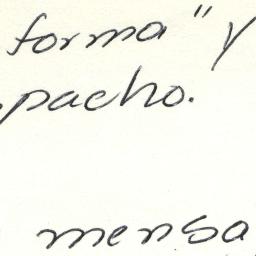 forma" y
pacho.
mensa